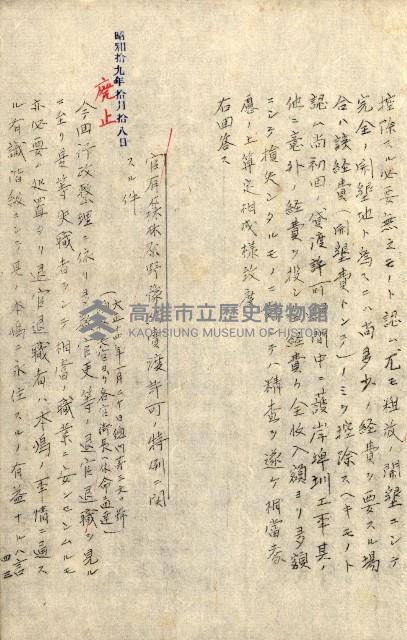 控除スル必要無之モノト認ム尤モ粗放ノ開墾ニシテ
完全ノ開墾地ト為スニハ尚多少ノ経費ヲ要スル場
合ハ該経費(開墾費トシテ)ノミヲ控除スヘキモノト
認ム尚初回ノ貸渡許可期間中ニ護岸埤圳工事其ノ
他ニ意外ノ経費ヲ投シ経費ノ全収入額ヨリ多額
ニシテ損失シタルモノニ
ハ精査ヲ遂ケ相当考
慮ノ上算定相成様致度
右回答ス
昭和拾九年拾月拾八日
廃止
官有森林原野豫約賣渡許可ノ特例ニ関
スル件
(大正十四年一月二十日総内第三六号
各官衙長ヘ依命通達)
今回行政整理ニ依リ
官吏等ノ退官退職ヲ見ル
ニ至リ是等失職者ヲシテ相當ノ職業ニ安ンセシムルモ
亦必要ノ処置ナリ退官退職者ハ本島ノ事情ニ通ス
ル有識階級ニシテ是ノ本島ニ永住スルノ有益ナルハ言
高雄市立歷史博物館
KAOHSIUNG MUSEUM OF HISTORY